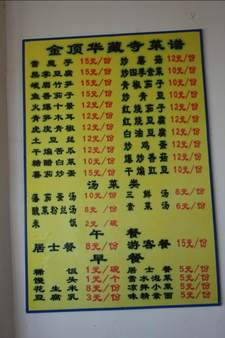 金顶华藏寺菜谱
雪魔芋 15元/份 炒蘑菇 12元/份
黑家豆腐 15元/份 炒四季豆 12元/份
峨眉竹笋 15元/份 青椒茄子 10元/份
鱼香茄子 15元/份 炒青豆 10元/份
火爆 12元/份 红烧茄子 12元/份
青笋木耳 12元/份 红烧豆腐 12元/份
虎皮青椒 12元/份 炒豆芽 12元/份
土豆丝 12元/份 白油 12元/份
干煸 12元/份 炒鸡蛋 12元/份
糖醋白菜 10元/份 炝白菜 10元/份
番茄炒蛋 15元/份
汤菜类
番茄蛋汤 10元/份 三鲜汤 8元/份
酸菜粉丝汤 8元/份 素菜汤 6元/份
米饭 2元/碗
午餐
居士餐 8元/份 游客餐 15元/份
早餐
稀饭 1元/碗 居士餐 5元/份
馒头 1元/个 雪菜素面 5元/份
花生米 8元/份 凉拌小菜 5元/份
豆腐乳 3元/份 味精素面 5元/份